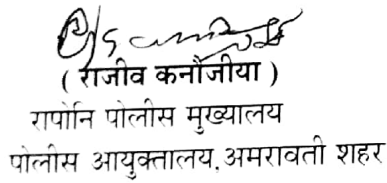 ( राजीव कनौजीया )
रापोनि पोलीस मुख्यालय
पोलीस आयुक्तालय, अमरावती शहर